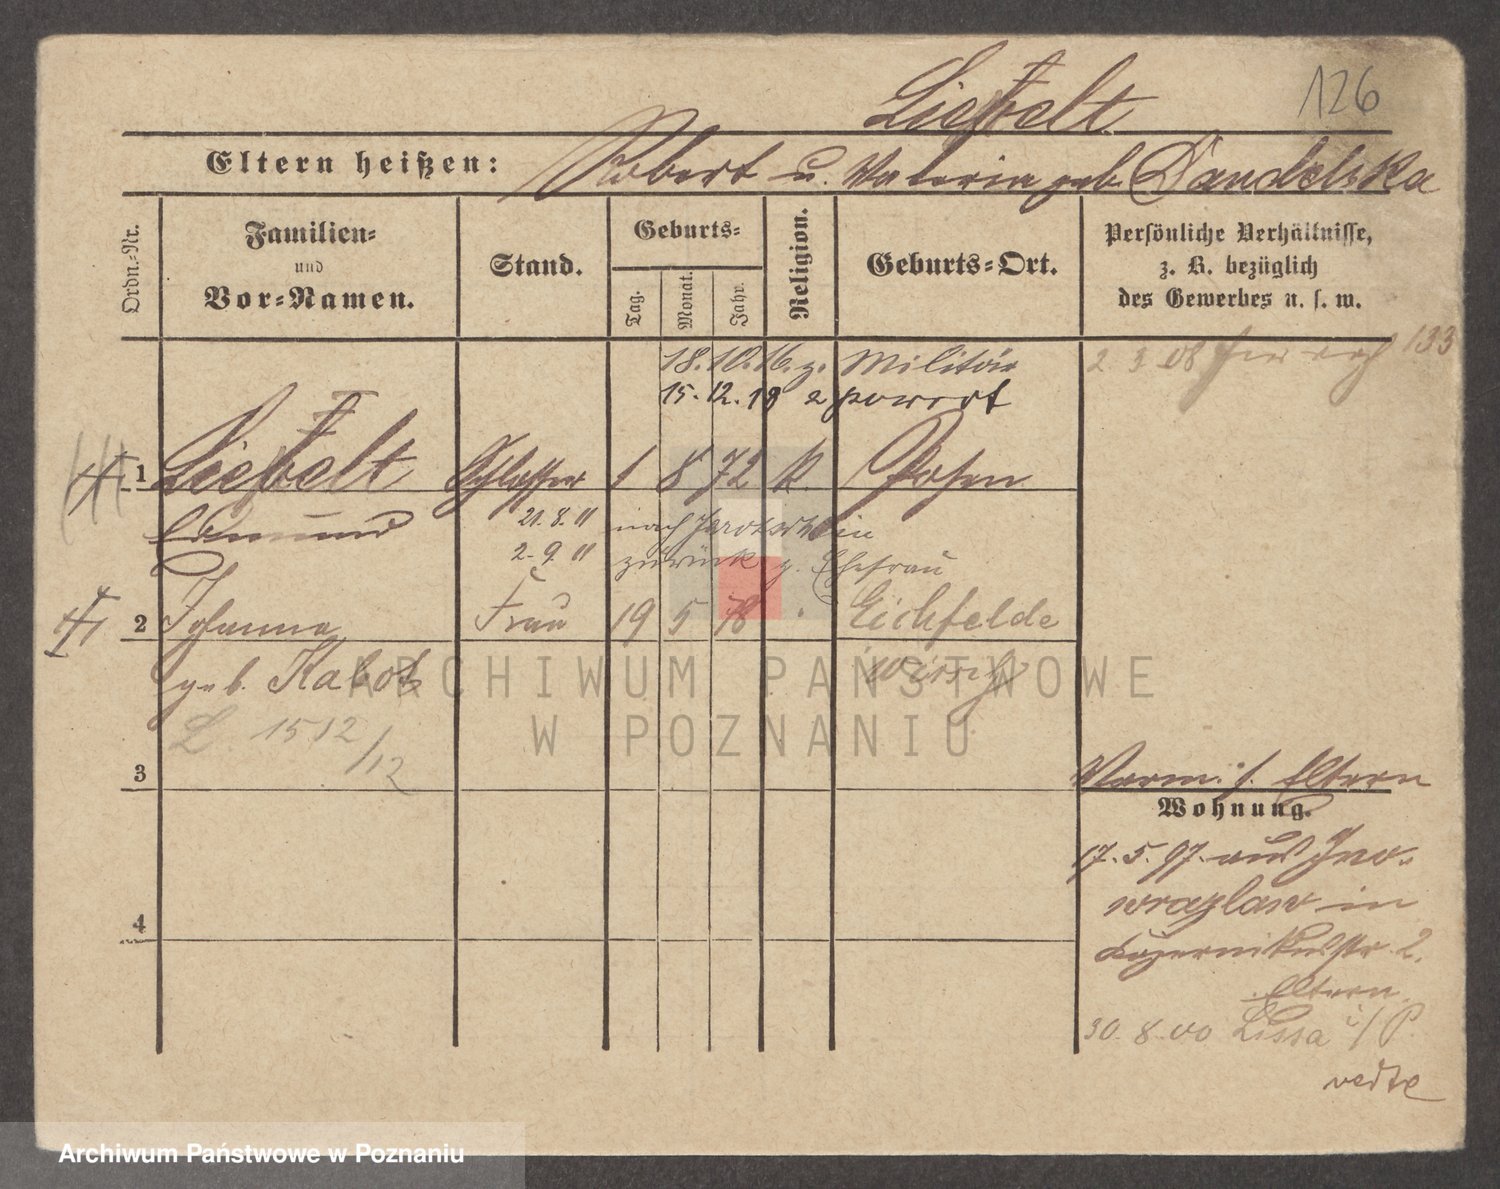 126
Liebelt
Eltern heißen: Robert u. Valeria geb. Dandelska
Ordn.-Nr.
Familien-
und
Vor-Namen.
Stand.
Geburts-
Tag.
Monat.
Jahr.
Religion.
Geburts-Ort.
Persönliche Verhältnisse,
z. B. bezüglich
des Gewerbes u. s. w.
18.10.16. z. Militär
2 3 08
133
15.12.18
1 Liebelt Schlosser 1 8 72 k. Posen
Edmund
21.8.11 nach Jarotschin
2.9.11 zurück z. Ehefrau
2 Johanna Frau 19 5 78 Eichfelde
geb. Kabot Wirsitz
L. 1512/12
3
Verm. s. Eltern
Wohnung.
17.5.97. aus Ino-
wrazlaw in
Kopernikusstr 2.
Eltern
4
30.8.00 Lissa i/P.
verte
ARCHIWUM PAŃSTWOWE
W POZNANIU
Archiwum Państwowe w Poznaniu